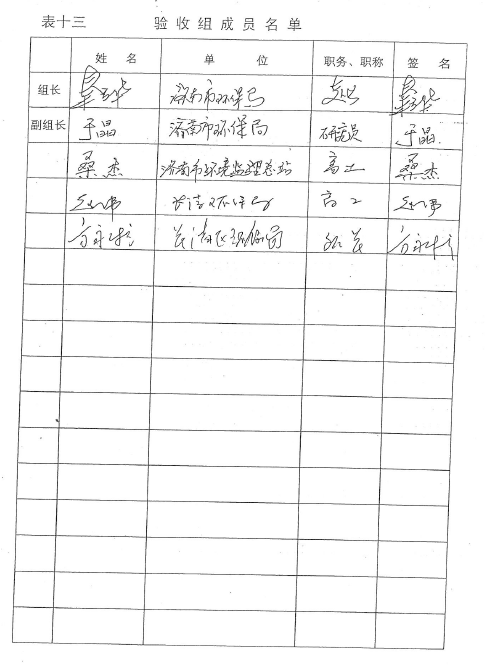 表十三 验收组成员名单
姓 名 单 位 职务、职称 签 名
组长 济南市环保局
副组长 于晶 济南市环保局 研究员 于晶
桑杰 济南市环境监理总站 高工 桑杰
长清区环保局 高工
长清区环保局